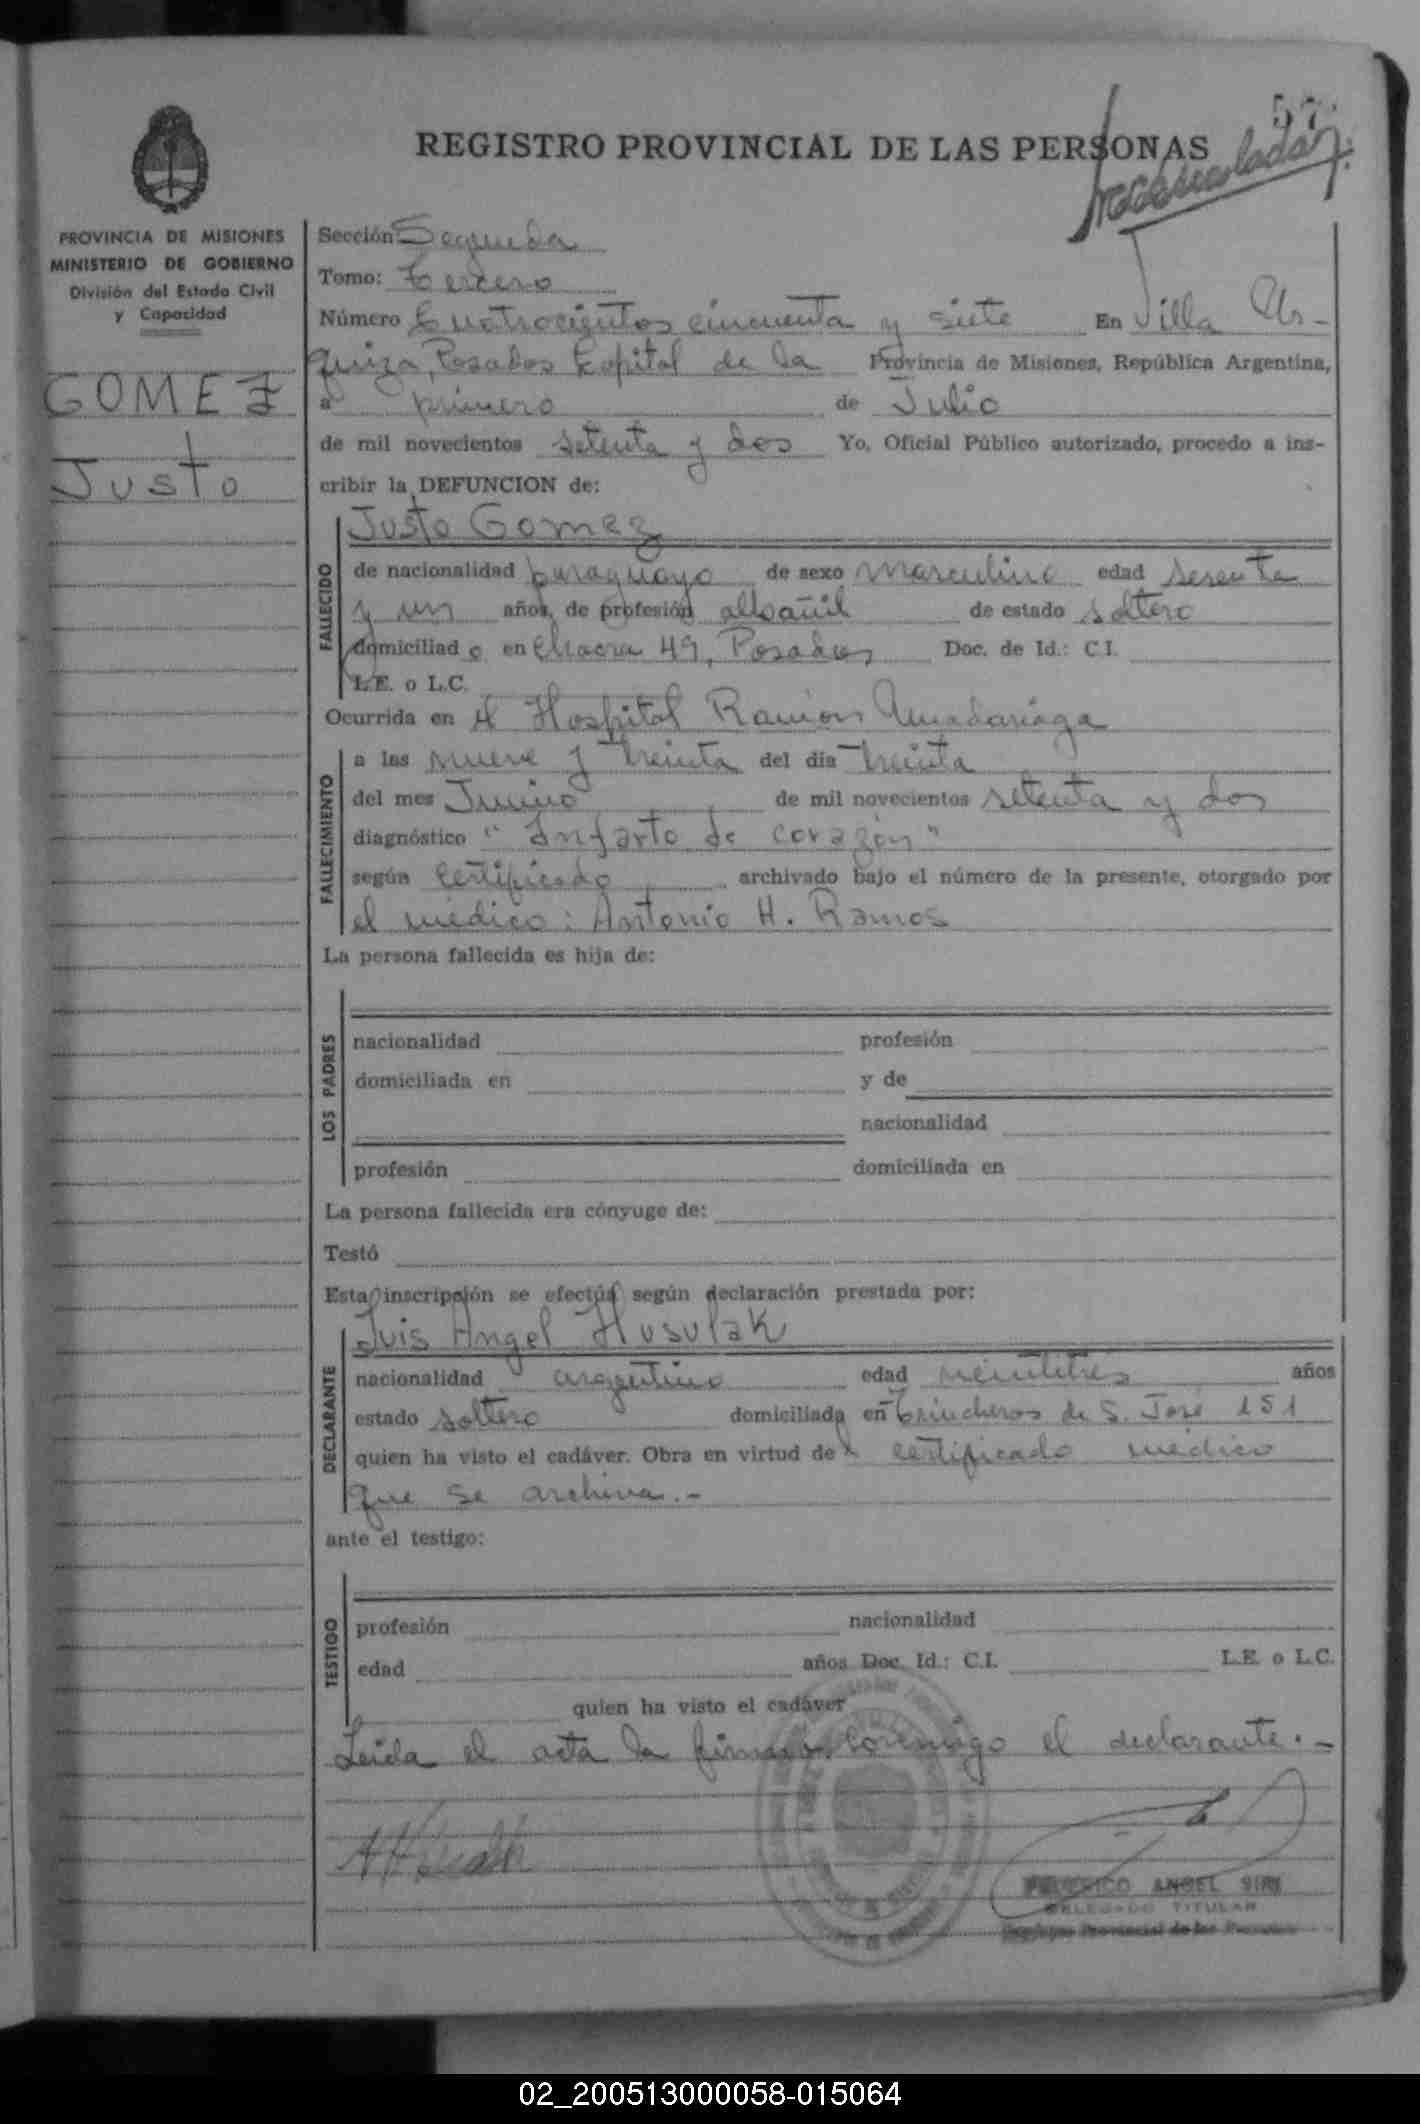 57
REGISTRO PROVINCIAL DE LAS PERSONAS
PROVINCIA DE MISIONES
MINISTERIO DE GOBIERNO
División del Estado Civil
y Capacidad
GOMEZ
Justo
Sección Segunda
Tomo: tercero
Número Cuatrocientos cincuenta y siete En Villa Ur-
quiza, Posadas Capital de la Provincia de Misiones, República Argentina,
a primero de Julio
de mil novecientos setenta y dos Yo, Oficial Público autorizado, procedo a ins-
cribir la DEFUNCION de:
FALLECIDO
Justo Gomez
de nacionalidad paraguayo de sexo masculino edad sesenta
y un años, de profesión albañil de estado soltero
domiciliado en Chacra 49, Posadas Doc. de Id.: C.I.
L.E. o L.C.
Ocurrida en el Hospital Ramón Amadariaga
FALLECIMIENTO
a las nueve y treinta del día treinta
del mes Junio de mil novecientos setenta y dos
diagnóstico "Infarto de corazón"
según certificado archivado bajo el número de la presente, otorgado por
el médico: Antonio H. Ramos
La persona fallecida es hija de:
LOS PADRES
nacionalidad profesión
domiciliada en y de
nacionalidad
profesión domiciliada en
La persona fallecida era cónyuge de:
Testó
Esta inscripción se efectúa según declaración prestada por:
DECLARANTE
Luis Angel Husulak
nacionalidad argentino edad veintitrés años
estado soltero domiciliada en Trincheros de S. José 151
quien ha visto el cadáver. Obra en virtud del certificado médico
que se archiva.-
ante el testigo:
TESTIGO
profesión nacionalidad
edad años Doc. Id.: C.I. L.E. o L.C.
quien ha visto el cadáver
Leida el acta la firma conmigo el declarante.-
FEDERICO ANGEL SIRI
DELEGADO TITULAR
Registro Provincial de las Personas
02_200513000058-015064